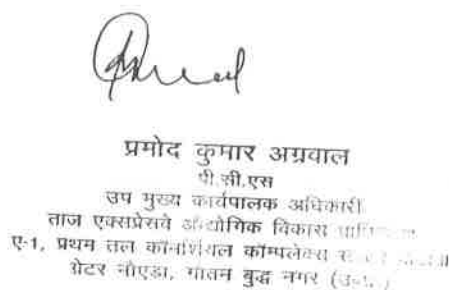 प्रमोद कुमार अग्रवाल
पी.सी.एस
उप मुख्य कार्यपालक अधिकारी
ताज एक्सप्रेसवे औद्योगिक विकास
ए-1, प्रथम तल कॉमर्शियल कॉम्पलेक्स
ग्रेटर नौएडा, गौतम बुद्ध नगर